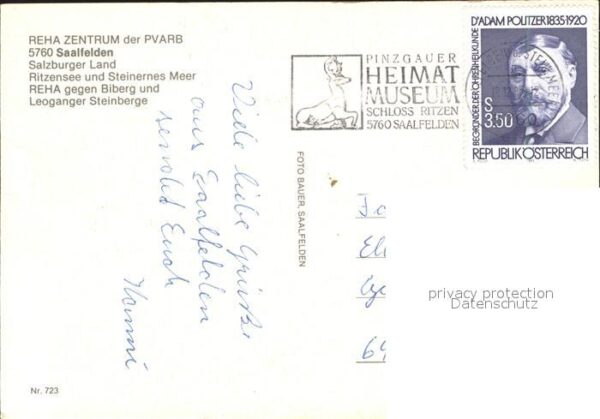 REHA ZENTRUM der PVARB
5760 Saalfelden
Salzburger Land
Ritzensee und Steinernes Meer
REHA gegen Biberg und
Leoganger Steinberge
PINZGAUER
HEIMAT
MUSEUM
SCHLOSS RITZEN
5760 SAALFELDEN
D'ADAM POLITZER 1835-1920
BEGRÜNDER DER OHRENHEILKUNDE
S
3.50
REPUBLIK ÖSTERREICH
Viele liebe Grüße
aus Saalfelden
sendet Euch
Hanni
FOTO BAUER, SAALFELDEN
privacy protection
Datenschutz
Nr. 723